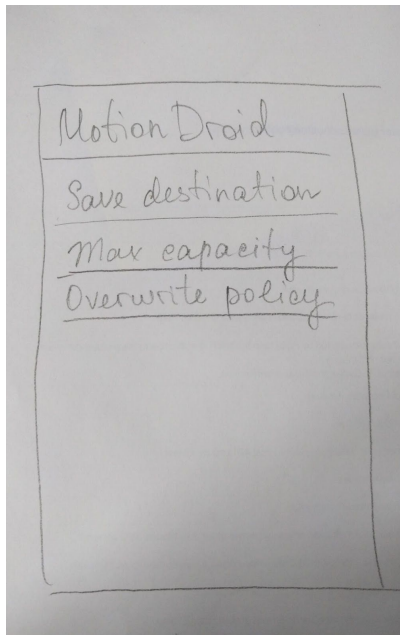 Motion Droid
Save destination
Max capacity
Overwrite policy